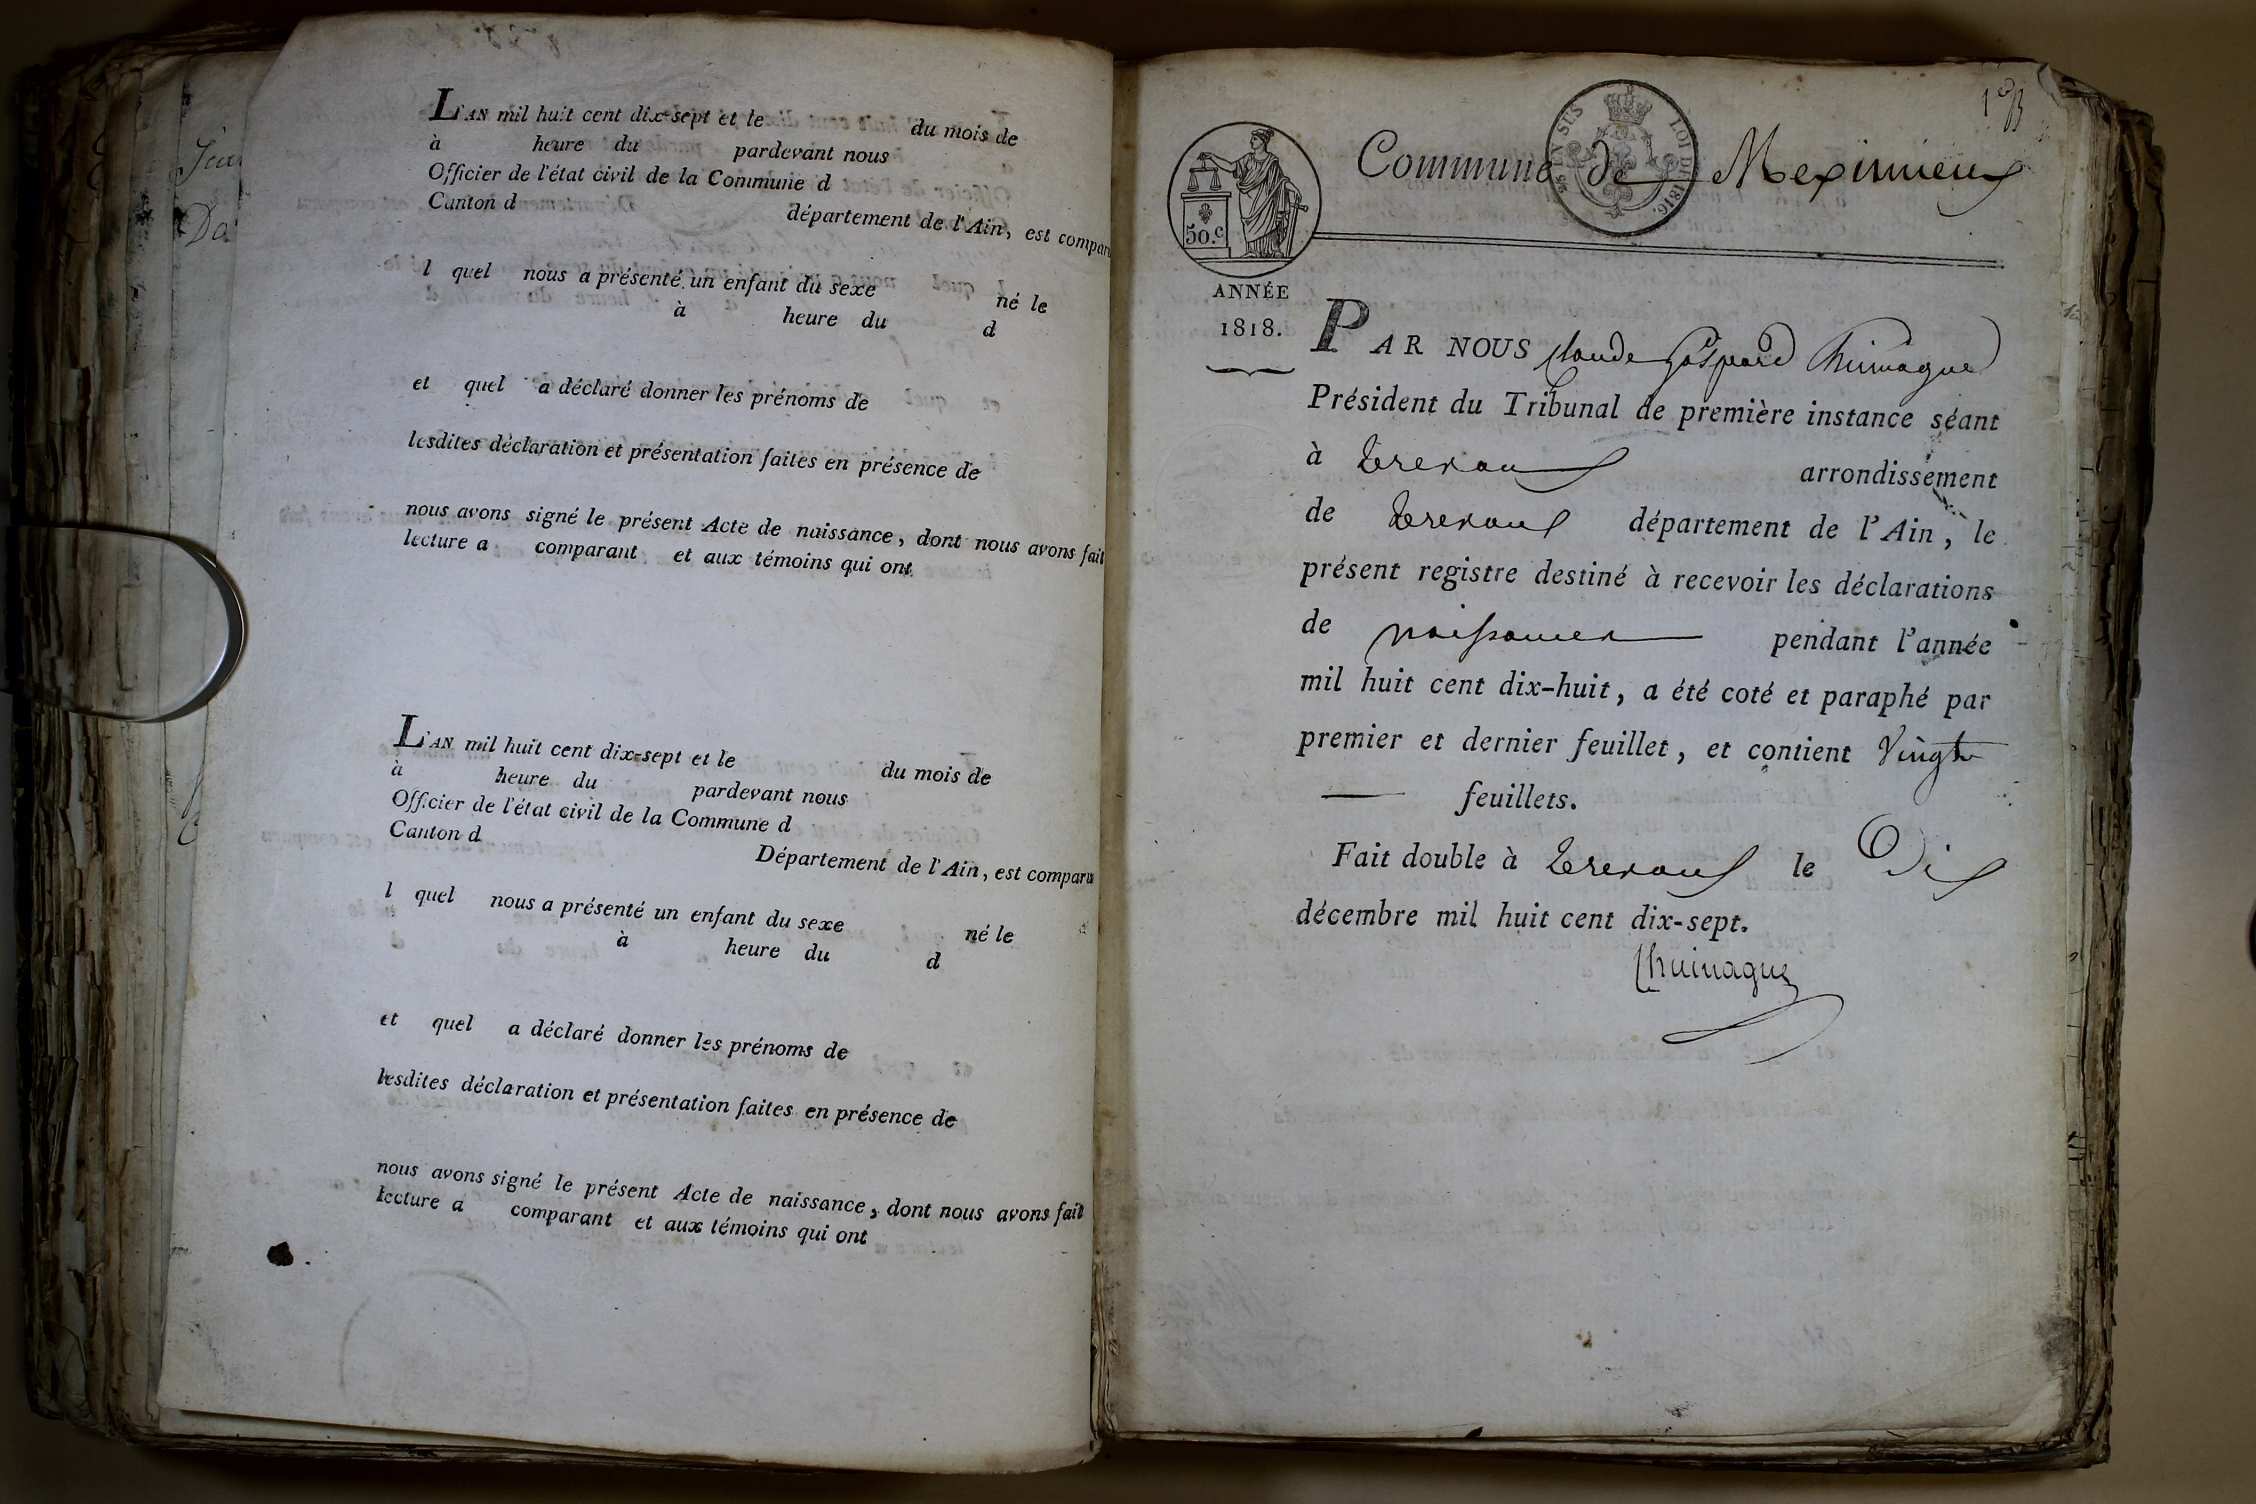 L'AN mil huit cent dix-sept et le du mois de
à heure du pardevant nous
Officier de l'état civil de la Commune d
Canton d département de l'Ain, est comparu
l quel nous a présenté un enfant du sexe né le
à heure du d
et quel a déclaré donner les prénoms de
lesdites déclaration et présentation faites en présence de
nous avons signé le présent Acte de naissance, dont nous avons fait
lecture a comparant et aux témoins qui ont
L'AN mil huit cent dix-sept et le du mois de
à heure du pardevant nous
Officier de l'état civil de la Commune d
Canton d Département de l'Ain, est comparu
l quel nous a présenté un enfant du sexe né le
à heure du d
et quel a déclaré donner les prénoms de
lesdites déclaration et présentation faites en présence de
nous avons signé le présent Acte de naissance, dont nous avons fait
lecture a comparant et aux témoins qui ont
EN SUS LOI DE 1816.
Commune de Meximieux
50.c
ANNÉE
1818.
PAR NOUS Claude Gaspard
Président du Tribunal de première instance séant
à Trevoux arrondissement
de Trevoux département de l'Ain, le
présent registre destiné à recevoir les déclarations
de naissances pendant l'année
mil huit cent dix-huit, a été coté et paraphé par
premier et dernier feuillet, et contient Vingt
feuillets.
Fait double à Trevoux le Dix
décembre mil huit cent dix-sept.